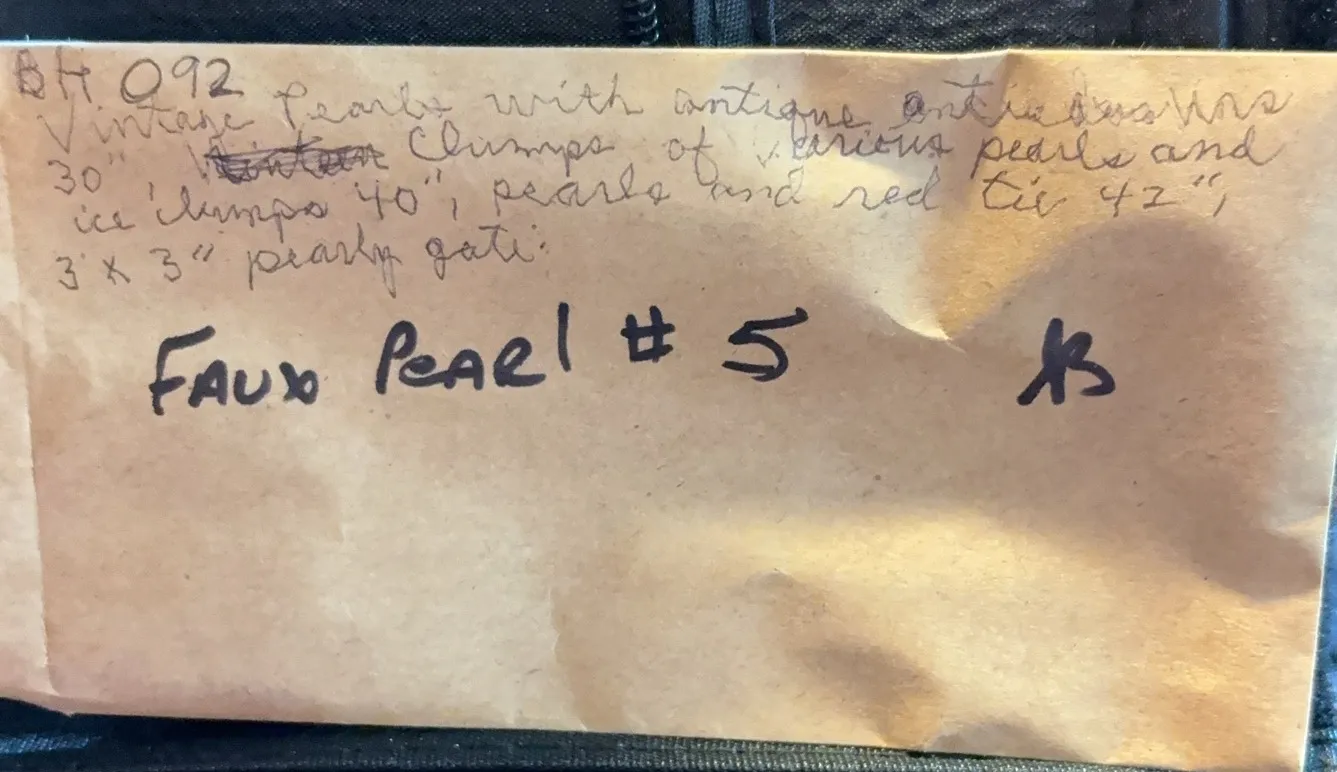 BH 092
Vintage Pearls with antique
30" Clumps of various pearls and
ice clumps 40", pearls and red tie 42",
3 x 3" pearly gate.
FAUX PEARl # 5